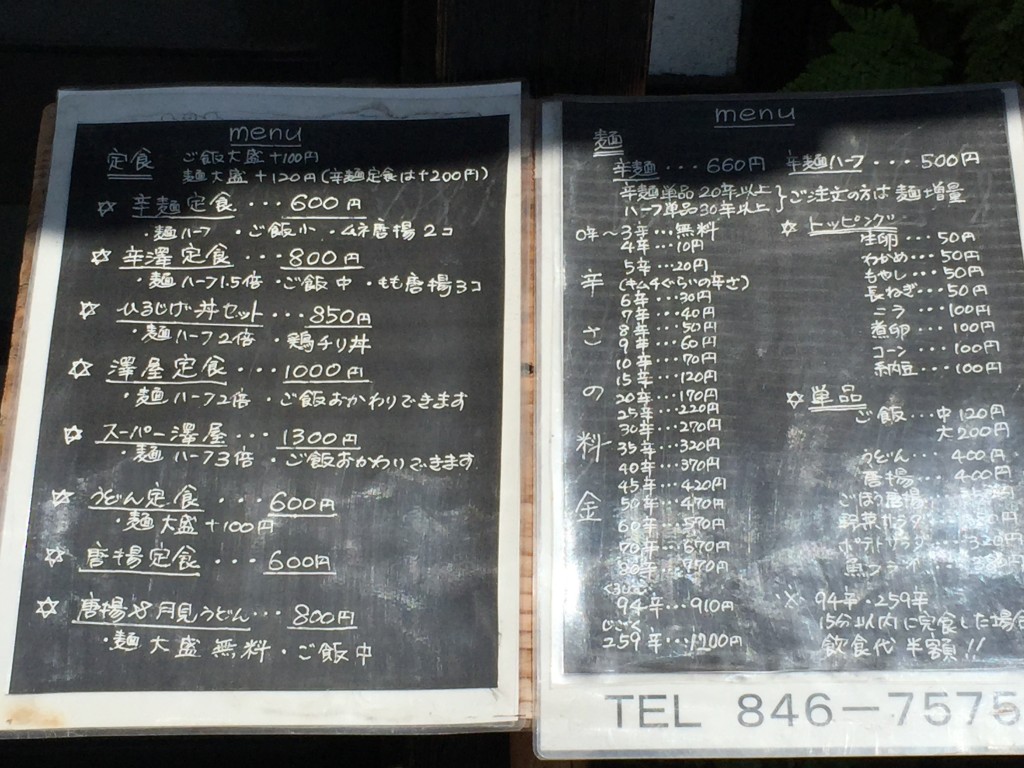 menu
定食 ご飯大盛+100円
麺大盛+120円(辛麺定食は+200円)
☆ 辛麺定食・・・600円
・麺ハーフ ・ご飯小 ・ムネ唐揚2コ
☆ 辛澤定食・・・800円
・麺ハーフ1.5倍 ・ご飯中 ・もも唐揚3コ
☆ ひろしげ丼セット・・・850円
・麺ハーフ2倍 ・鶏チリ丼
☆ 澤屋定食・・・1000円
・麺ハーフ2倍 ・ご飯おかわりできます
☆ スーパー澤屋・・・1300円
・麺ハーフ3倍 ・ご飯おかわりできます
☆ うどん定食・・・600円
・麺大盛+100円
☆ 唐揚定食・・・600円
☆ 唐揚&月見うどん・・・800円
・麺大盛無料 ・ご飯中
menu
麺
辛麺・・・660円 辛麺ハーフ・・・500円
辛麺単品20辛以上
ハーフ単品30辛以上 }ご注文の方は麺増量
辛さの料金
0辛〜3辛・・・無料
4辛・・・10円
5辛・・・20円
(キムチぐらいの辛さ)
6辛・・・30円
7辛・・・40円
8辛・・・50円
9辛・・・60円
10辛・・・70円
15辛・・・120円
20辛・・・170円
25辛・・・220円
30辛・・・270円
35辛・・・320円
40辛・・・370円
45辛・・・420円
50辛・・・470円
60辛・・・570円
70辛・・・670円
辛・・・770円
94辛・・・910円
じごく
259辛・・・1200円
☆ トッピング
生卵・・・50円
わかめ・・・50円
もやし・・・50円
長ねぎ・・・50円
ニラ・・・100円
煮卵・・・100円
コーン・・・100円
納豆・・・100円
☆ 単品
ご飯・・・中120円
大200円
うどん・・・400円
唐揚・・・400円
ごぼう唐揚・・・
野菜サラダ・・・
ポテトサラダ・・・320円
魚フライ・・・
※ 94辛・259辛
15分以内に完食した場合
飲食代半額!!
TEL 846-7575